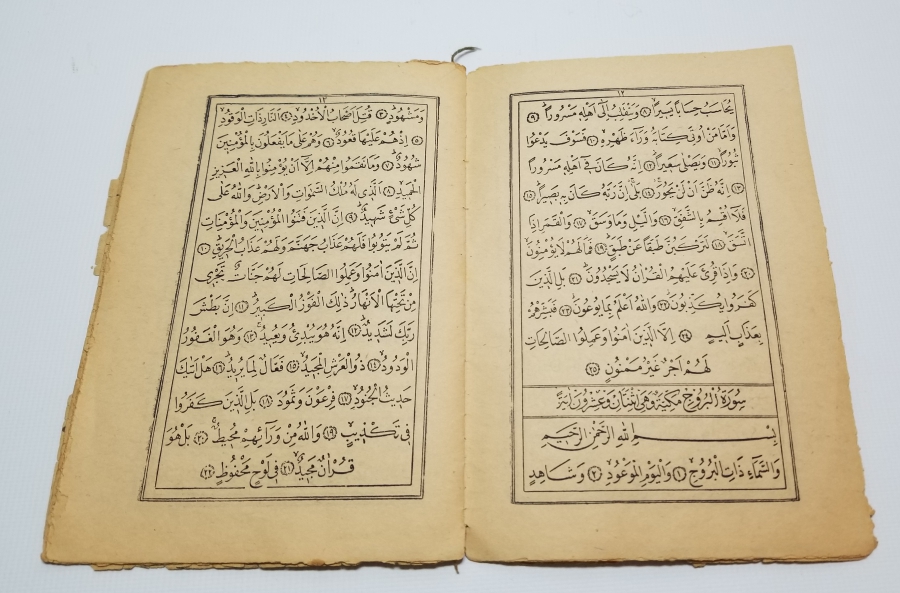 ١٢
يُحَاسَبُ حِسَابًا يَسِيرًا ٨ وَيَنْقَلِبُ اِلٰٓى اَهْلِهٖ مَسْرُورًا ٩
وَاَمَّا مَنْ اُو۫تِيَ كِتَابَهُ وَرَٓاءَ ظَهْرِهٖ ١٠ فَسَوْفَ يَدْعُوا
ثُبُورًا ١١ وَيَصْلٰى سَعِيرًا ١٢ اِنَّهُ كَانَ فٖٓى اَهْلِهٖ مَسْرُورًا
١٣ اِنَّهُ ظَنَّ اَنْ لَنْ يَحُورَ ١٤ بَلٰٓى اِنَّ رَبَّهُ كَانَ بِهٖ بَصِيرًا ١٥
فَلَٓا اُقْسِمُ بِالشَّفَقِ ١٦ وَالَّيْلِ وَمَا وَسَقَ ١٧ وَالْقَمَرِ اِذَا
اتَّسَقَ ١٨ لَتَرْكَبُنَّ طَبَقًا عَنْ طَبَقٍ ١٩ فَمَا لَهُمْ لَا يُؤْمِنُونَ
٢٠ وَاِذَا قُرِئَ عَلَيْهِمُ الْقُرْاٰنُ لَا يَسْجُدُونَ ٢١ بَلِ الَّذِينَ
كَفَرُوا يُكَذِّبُونَ ٢٢ وَاللّٰهُ اَعْلَمُ بِمَا يُوعُونَ ٢٣ فَبَشِّرْهُمْ
بِعَذَابٍ اَلِيمٍ ٢٤ اِلَّا الَّذِينَ اٰمَنُوا وَعَمِلُوا الصَّالِحَاتِ
لَهُمْ اَجْرٌ غَيْرُ مَمْنُونٍ ٢٥
سُورَةُ الْبُرُوجِ مَكِّيَّةٌ وَهِيَ اثْنَتَانِ وَعِشْرُونَ اٰيَةً
بِسْمِ اللّٰهِ الرَّحْمٰنِ الرَّحِيمِ
وَالسَّمَٓاءِ ذَاتِ الْبُرُوجِ ١ وَالْيَوْمِ الْمَوْعُودِ ٢ وَشَاهِدٍ
١٣
وَمَشْهُودٍ ٣ قُتِلَ اَصْحَابُ الْاُخْدُودِ ٤ اَلنَّارِ ذَاتِ الْوَقُودِ
٥ اِذْ هُمْ عَلَيْهَا قُعُودٌ ٦ وَهُمْ عَلٰى مَا يَفْعَلُونَ بِالْمُؤْمِنِينَ
شُهُودٌ ٧ وَمَا نَقَمُوا مِنْهُمْ اِلَّٓا اَنْ يُؤْمِنُوا بِاللّٰهِ الْعَزِيزِ
الْحَمِيدِ ٨ اَلَّذِى لَهُ مُلْكُ السَّمٰوَاتِ وَالْاَرْضِ وَاللّٰهُ عَلٰى
كُلِّ شَىْءٍ شَهِيدٌ ٩ اِنَّ الَّذِينَ فَتَنُوا الْمُؤْمِنِينَ وَالْمُؤْمِنَاتِ
ثُمَّ لَمْ يَتُوبُوا فَلَهُمْ عَذَابُ جَهَنَّمَ وَلَهُمْ عَذَابُ الْحَرِيقِ ١٠
اِنَّ الَّذِينَ اٰمَنُوا وَعَمِلُوا الصَّالِحَاتِ لَهُمْ جَنَّاتٌ تَجْرِى
مِنْ تَحْتِهَا الْاَنْهَارُ ذٰلِكَ الْفَوْزُ الْكَبِيرُ ١١ اِنَّ بَطْشَ
رَبِّكَ لَشَدِيدٌ ١٢ اِنَّهُ هُوَ يُبْدِئُ وَيُعِيدُ ١٣ وَهُوَ الْغَفُورُ
الْوَدُودُ ١٤ ذُوالْعَرْشِ الْمَجِيدُ ١٥ فَعَّالٌ لِمَا يُرِيدُ ١٦ هَلْ اَتٰيكَ
حَدِيثُ الْجُنُودِ ١٧ فِرْعَوْنَ وَثَمُودَ ١٨ بَلِ الَّذِينَ كَفَرُوا
فِى تَكْذِيبٍ ١٩ وَاللّٰهُ مِنْ وَرَٓائِهِمْ مُحِيطٌ ٢٠ بَلْ هُوَ
قُرْاٰنٌ مَجِيدٌ ٢١ فِى لَوْحٍ مَحْفُوظٍ ٢٢